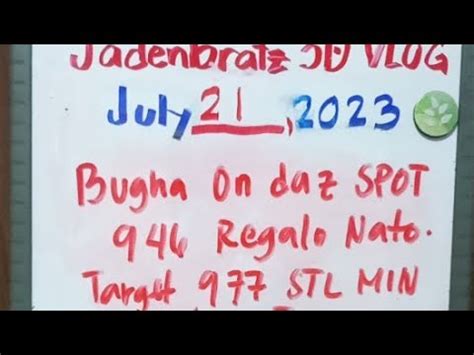 Jadenbratz 3D VLOG
July 21, 2023
Bugha On daz SPOT
946 Regalo Nato.
Target 977 STL MIN